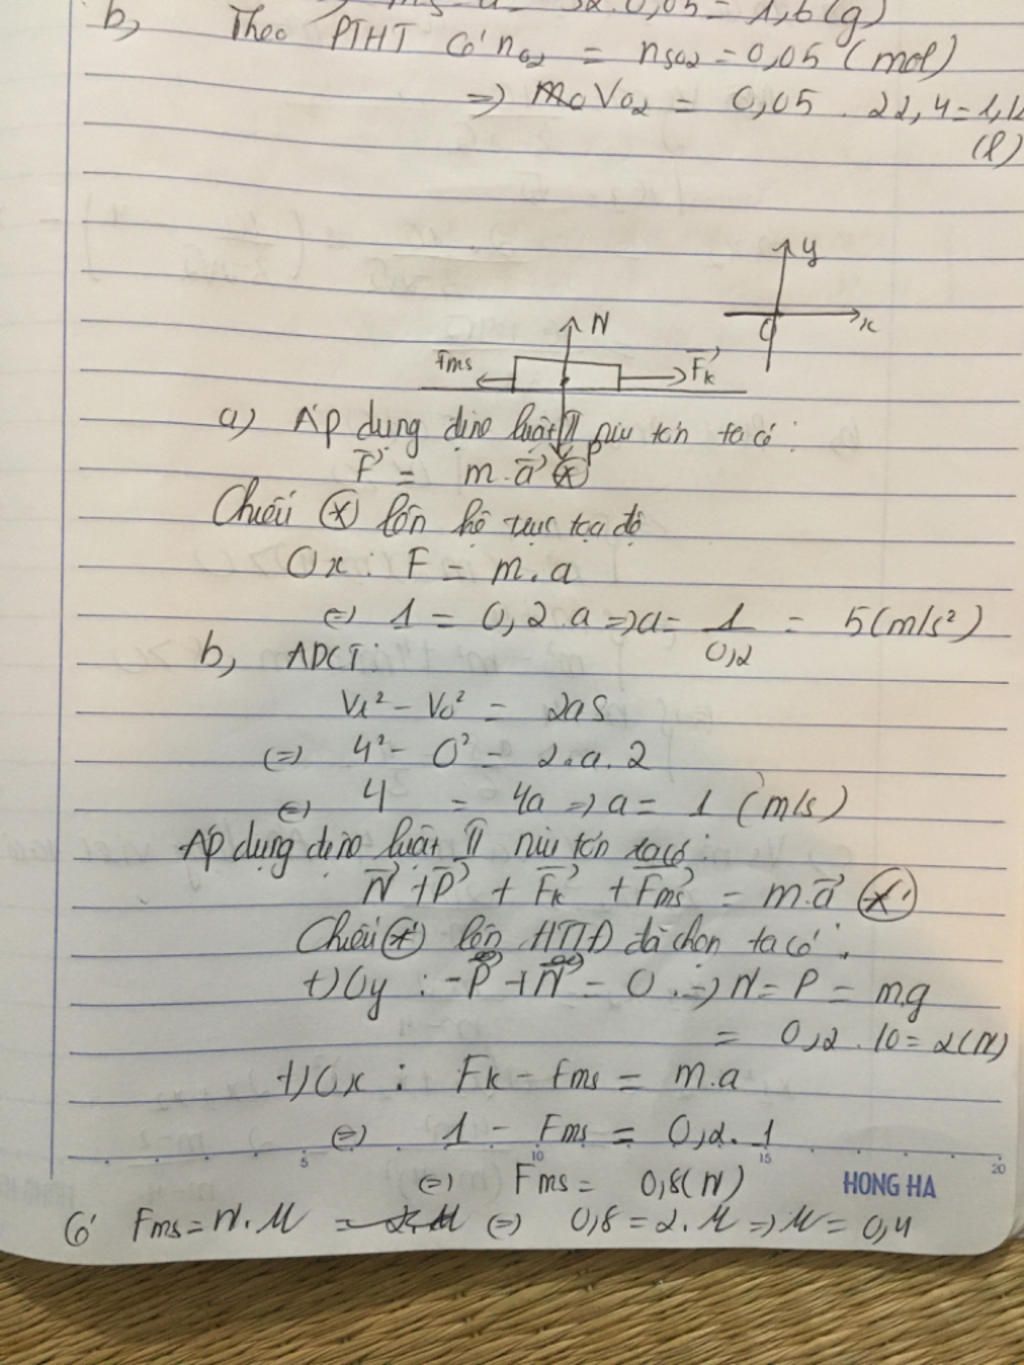 = 32.0,05 = 1,6(g)
b, Theo PTHT có n O2 = n SO2 = 0,05 (mol)
=> V O2 = 0,05 . 22,4 = 1,12
(l)
y
O x
N
Fms Fk
P
a) Áp dụng định luật II niu tơn ta có:
F = m.a (*)
Chiếu (*) lên hệ trục tọa độ
Ox : F = m.a
(=) 1 = 0,2.a => a = 1/0,2 = 5(m/s²)
b, ADCT:
V1² - V0² = 2aS
(=) 4² - 0² = 2.a.2
(=) 4 = 4a => a = 1 (m/s)
Áp dụng định luật II niu tơn ta có:
N + P + Fk + Fms = m.a (*')
Chiếu (*') lên HTTĐ đã chọn ta có:
+) Oy : -P + N = 0 => N = P = mg
= 0,2 . 10 = 2(N)
+) Ox : Fk - Fms = m.a
(=) 1 - Fms = 0,2.1
5 10 15 20
(=) Fms = 0,8(N)
HONG HA
Có Fms = N.M (=) 0,8 = 2.M => M = 0,4